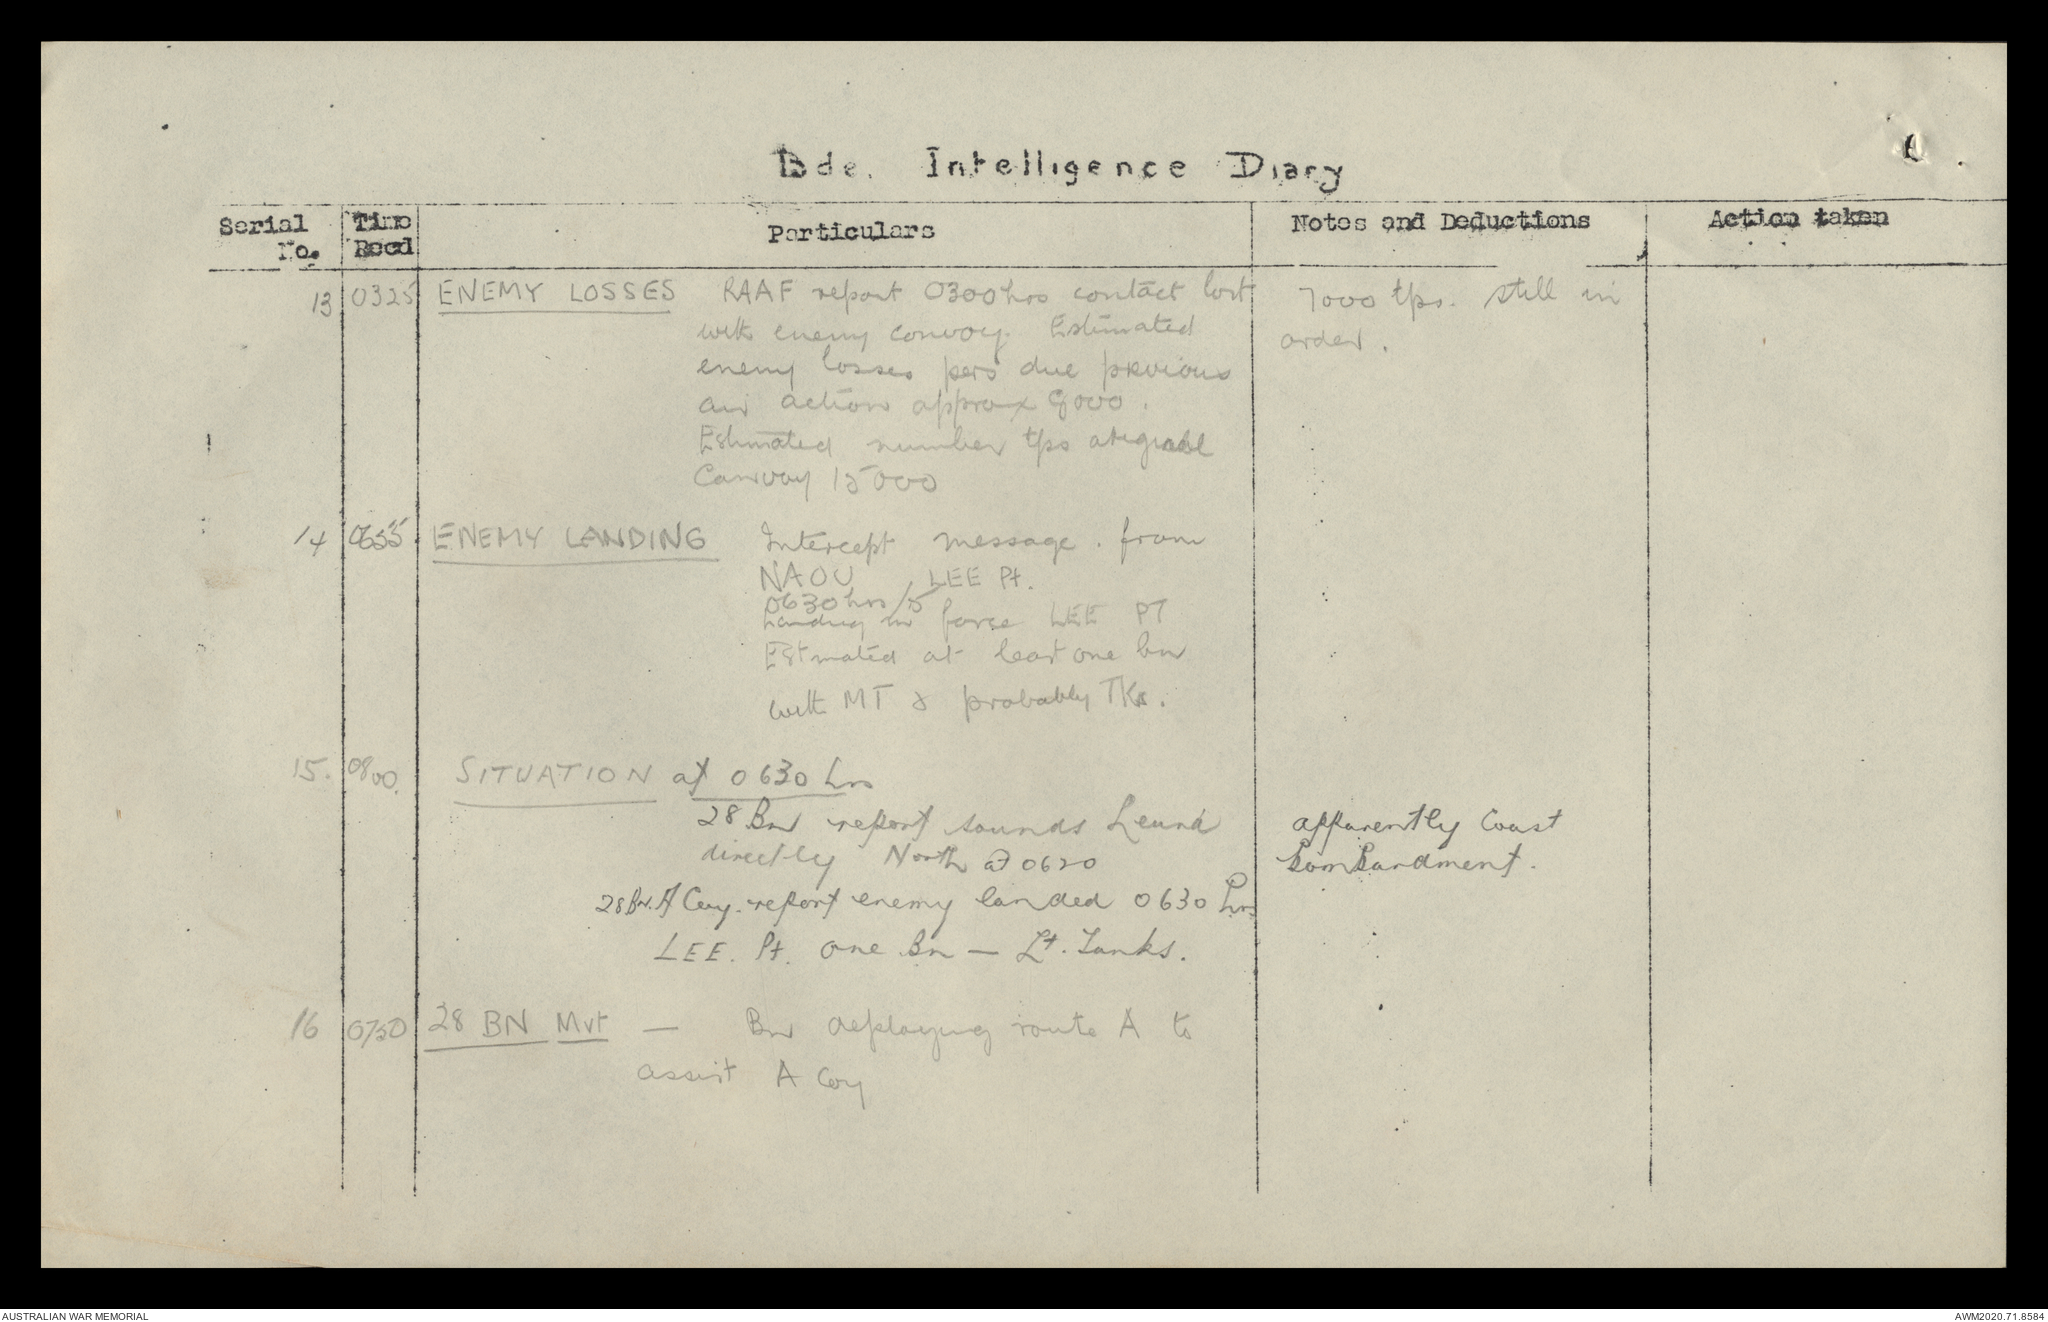 Bde. Intelligence Diary
Serial No. Time Recd Particulars Notes and Deductions Action taken
13 0325 ENEMY LOSSES RAAF report 0300 hrs contact lost 7000 tps. still in
with enemy convoy. Estimated order.
enemy losses pers due previous
air action approx 8000.
Estimated number tps original
Convoy 15000
14 0655 ENEMY LANDING Intercept message. from
NAOU LEE Pt.
0630 hrs/5
Landing in force LEE PT
Estmated at least one bn
with MT & probably TKs.
15. 0800. SITUATION at 0630 hrs
28 Bn report sounds heard apparently Coast
directly North at 0620 bombardment.
28 Bn. A Coy. report enemy landed 0630 hrs
LEE. Pt. one Bn — Lt. Tanks.
16 0750 28 BN Mvt — Bn deploying route A to
assist A Coy
AUSTRALIAN WAR MEMORIAL AWM2020.71.8584